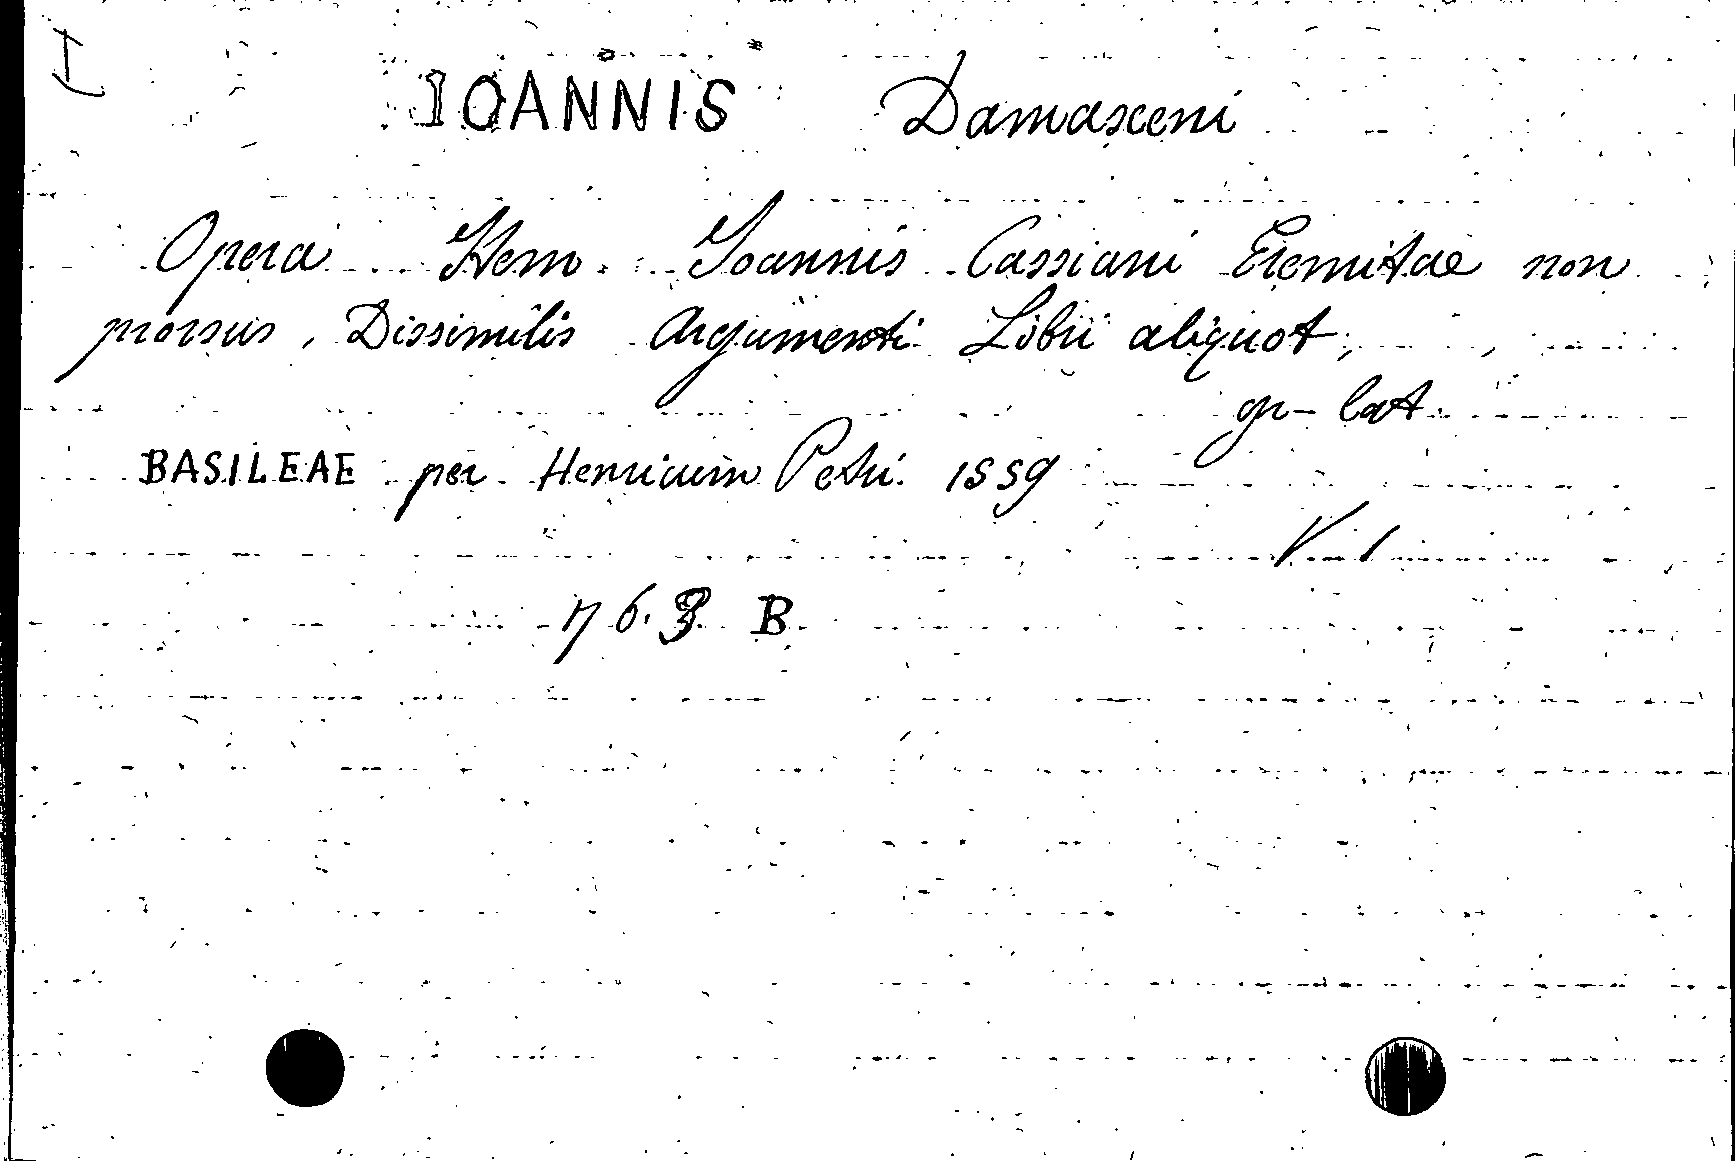 I
IOANNIS Damasceni
Opera Item. Ioannis Cassiani Eremitae non
prorsus, Dissimilis Argumenti Libri aliquot,
gr-lat.
BASILEAE per Henricum Petri. 1559
V 1
76.3 B